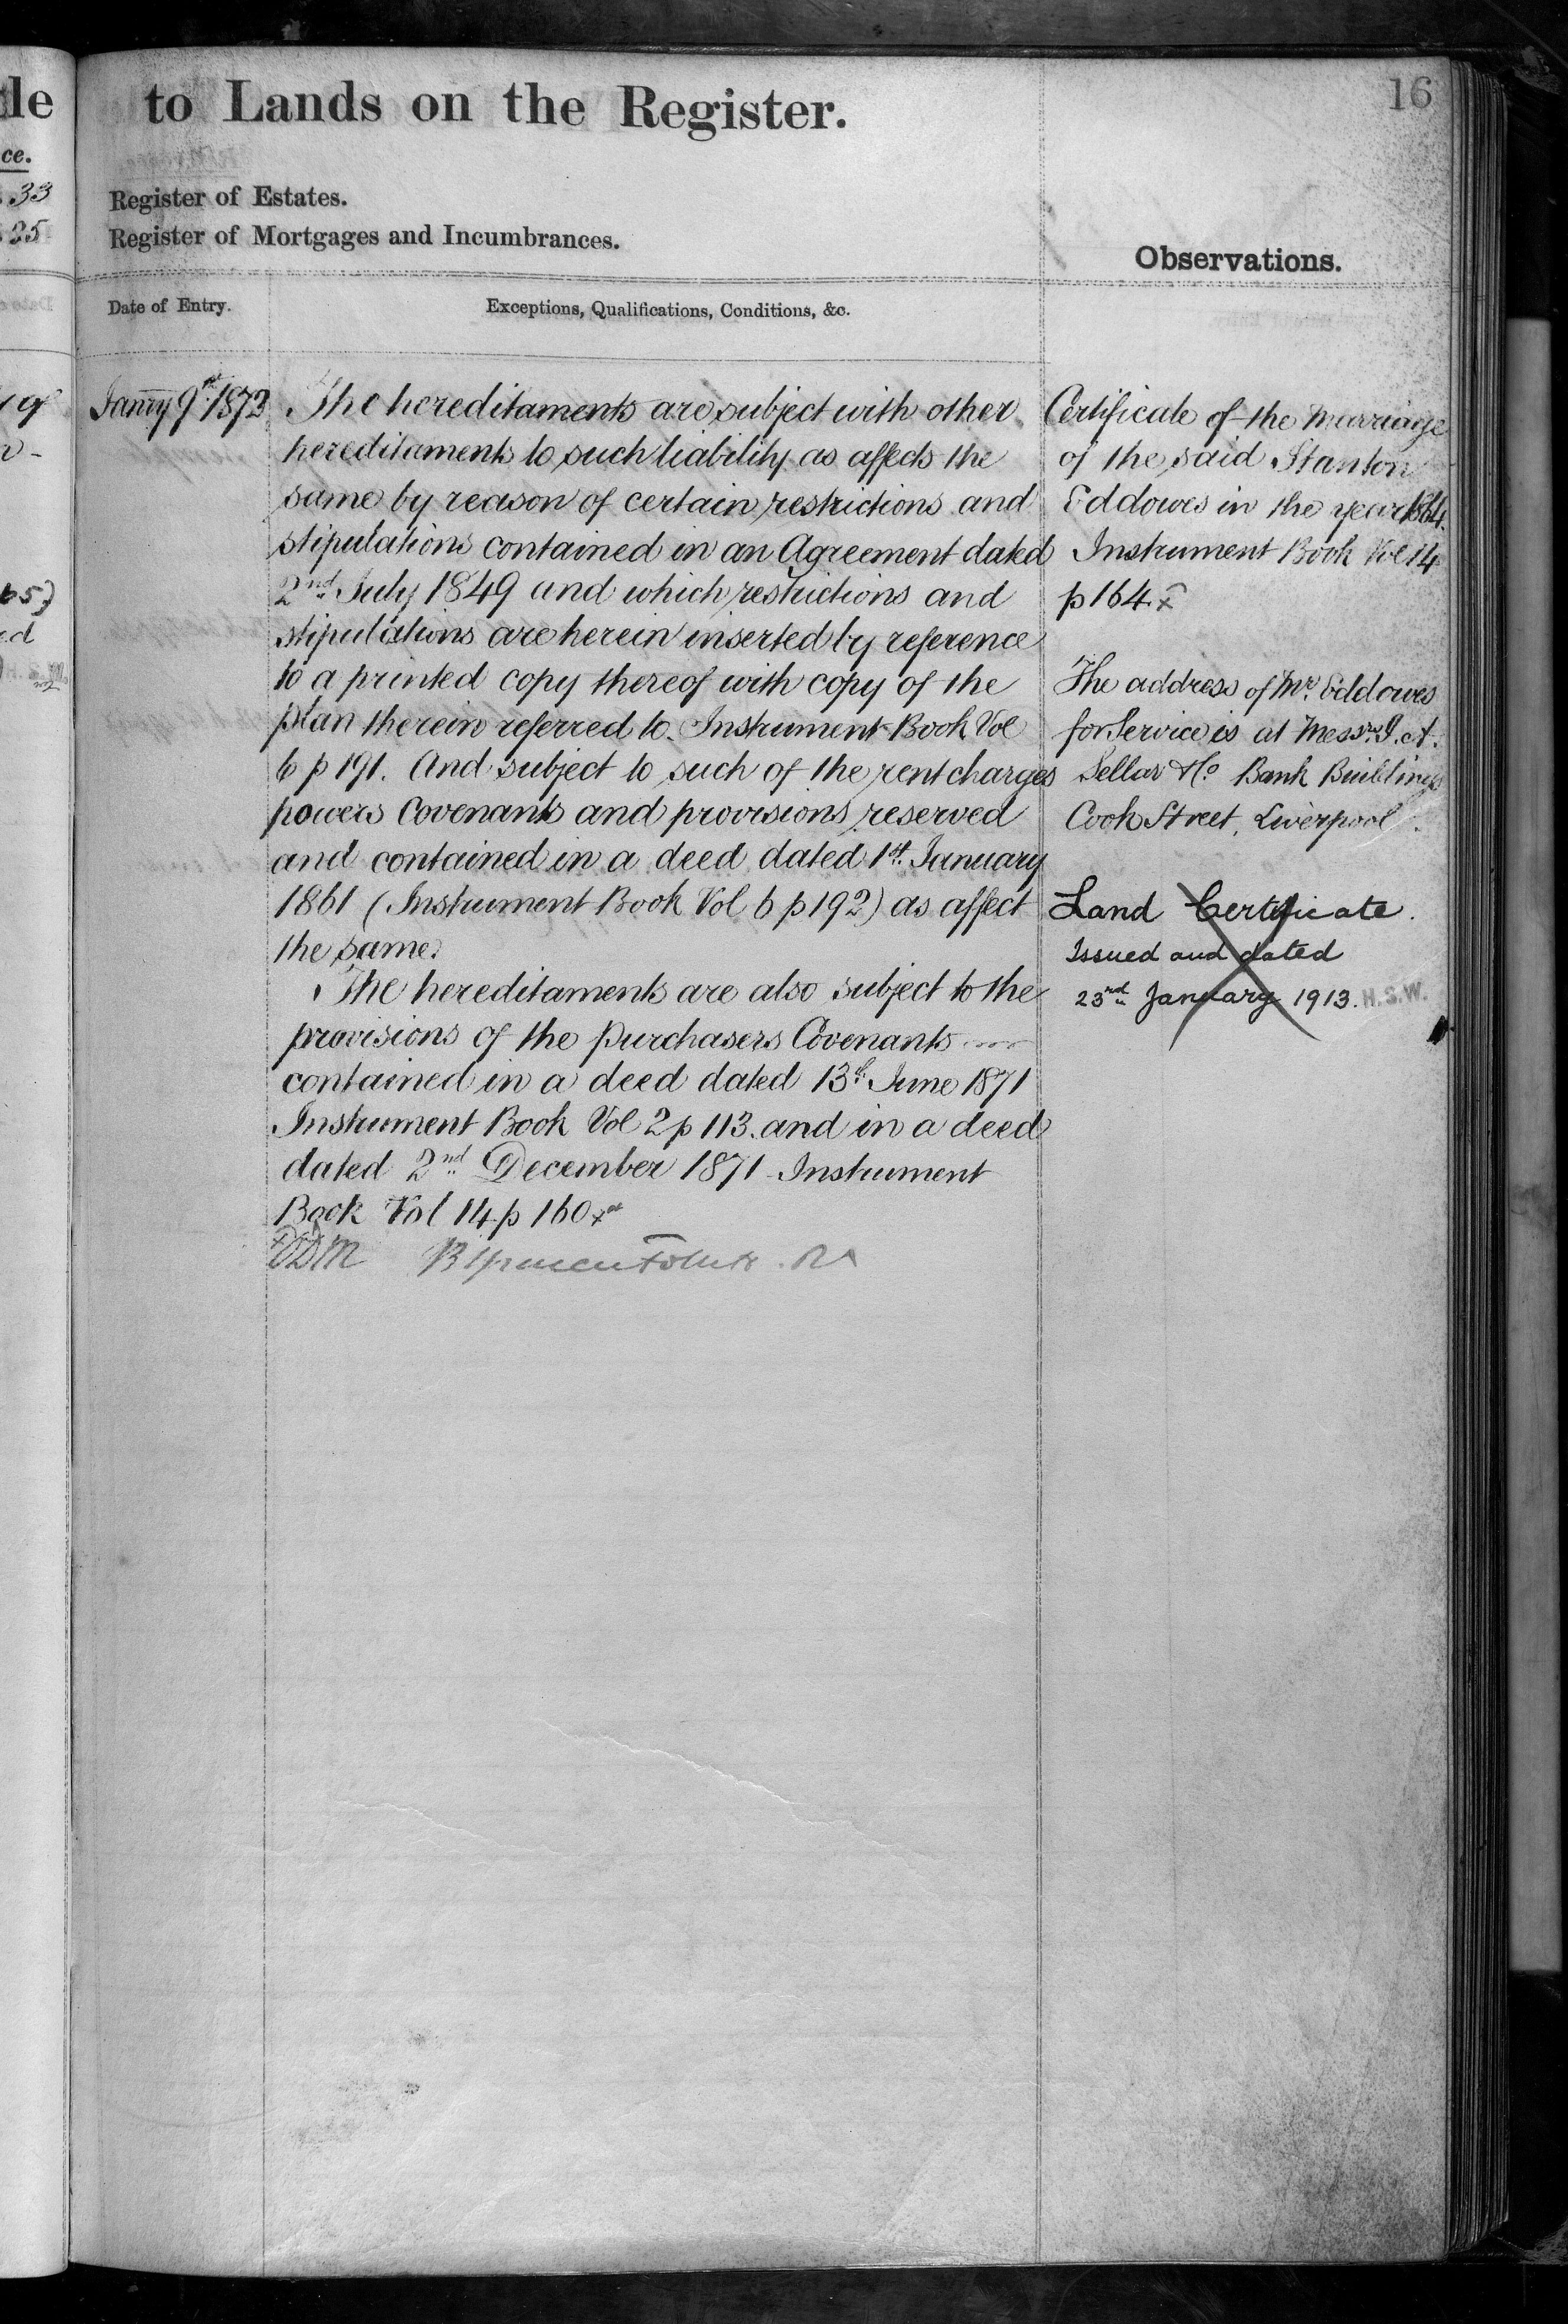 16
to Lands on the Register.
Register of Estates.
Register of Mortgages and Incumbrances.
Observations.
Date of Entry.
Exceptions, Qualifications, Conditions, &c.
Janry 9th 1873
The hereditaments are subject with other
hereditaments to such liability as affects the
same by reason of certain restrictions and
stipulations contained in an Agreement dated
2nd July 1849 and which restrictions and
stipulations are herein inserted by reference
to a printed copy thereof with copy of the
plan therein referred to. Instrument Book Vol
6 p 191. And subject to such of the rent charges
powers Covenants and provisions reserved
and contained in a deed dated 1st January
1861 (Instrument Book Vol 6 p 192) as affect
the same.
The hereditaments are also subject to the
provisions of the purchasers Covenants
contained in a deed dated 13th June 1871
Instrument Book Vol 2 p 113. and in a deed
dated 2nd December 1871 Instrument
Book Vol 14 p 160
Certificate of the Marriage
of the said Stanton
Eddowes in the year 1864.
Instrument Book Vol 14
p 164
The address of Mr. Eddowes
for Service is at Messrs. J. A.
Sellar & Co Bank Buildings
Cook Street, Liverpool.
Land Certificate.
Issued and dated
23rd January 1913. H.S.W.
le
ce.
33
25